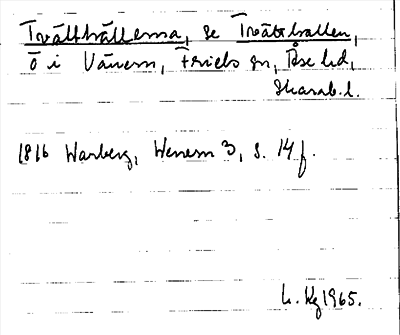 Tvätthällerna, se Tvätthallen,
ö i Vänern, Friels sn, Åse hd,
Skarab. l.
1816 Warberg, Wenern 3, s. 14 f.
L. Kg 1965.